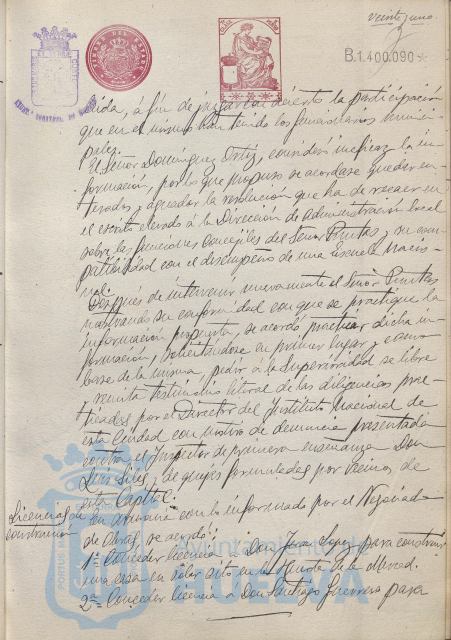 veintiuno
B.1.400.090
TIMBRE DEL ESTADO
cida, á fin de juzgar con acierto la participación
que en el mismo han tenido los funcionarios munici-
pales.
El Señor Domínguez Ortiz, consideró ineficaz la in-
formación, por lo que propuso se acordase quedar en-
terados y aguardar la resolución que ha de recaer en
el escrito elevado á la Dirección de Administración Local
sobre las funciones concejiles del Señor Puntas y su com-
patibilidad con el desempeño de una Escuela Nacio-
nal.
Después de intervenir nuevamente el Señor Puntas
mostrando su conformidad con que se practique la
información propuesta, se acordó practicar dicha in-
formación, solicitándose en primer lugar y como
base de la misma, pedir á la Superioridad se libre
y remita testimonio literal de las diligencias prac-
ticadas por el Director del Instituto Nacional de
esta Ciudad con motivo de denuncia presentada
contra el Inspector de primera enseñanza Don
Luis Siles, y de quejas formuladas por vecinos de
esta Capital.
Licencias de
construcción
En armonía con lo informado por el Negociado
de Obras se acordó:
1º Conceder licencia á Don Juan López para construir
una casa en solar sito en la Cuesta de la Merced.
2º Conceder licencia á Don Santiago Guerrero para
Ayuntamiento de
HUELVA